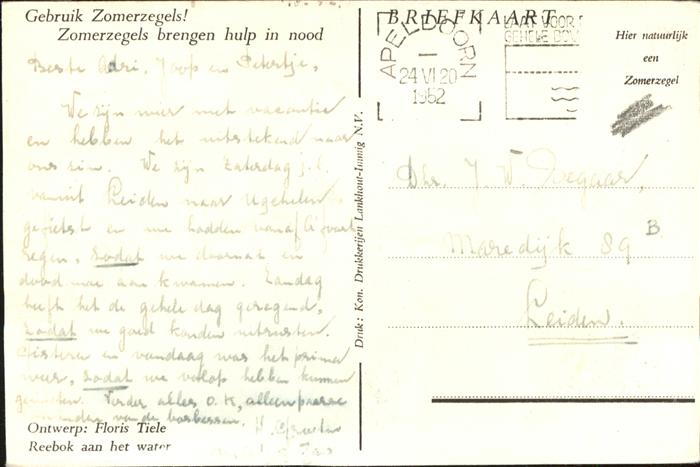 Gebruik Zomerzegels!
Zomerzegels brengen hulp in nood
Beste Adri, Joop en Petertje,
We zijn weer met vacantie
en hebben het uitstekend naar
ons zin. We zijn Zaterdag j.l.
vanuit Leiden naar Ugchelen
gefietst en we hadden vanaf
regen, zodat we doornat en
dood moe aan kwamen. Zondag
heeft het de gehele dag geregend,
zodat we goed konden uitrusten.
Gisteren en vandaag was het prima
weer, zodat we volop hebben kunnen
genieten. Verder alles O.K, alleen
van de bosbessen.
Ontwerp: Floris Tiele
Reebok aan het water
Druk: Kon. Drukkerijen Lankhout-Immig N.V.
BRIEFKAART
APELDOORN
24 VI 20
1952
Hier natuurlijk
een
Zomerzegel
Dhr. J. W.
Maredijk 89 B
Leiden.